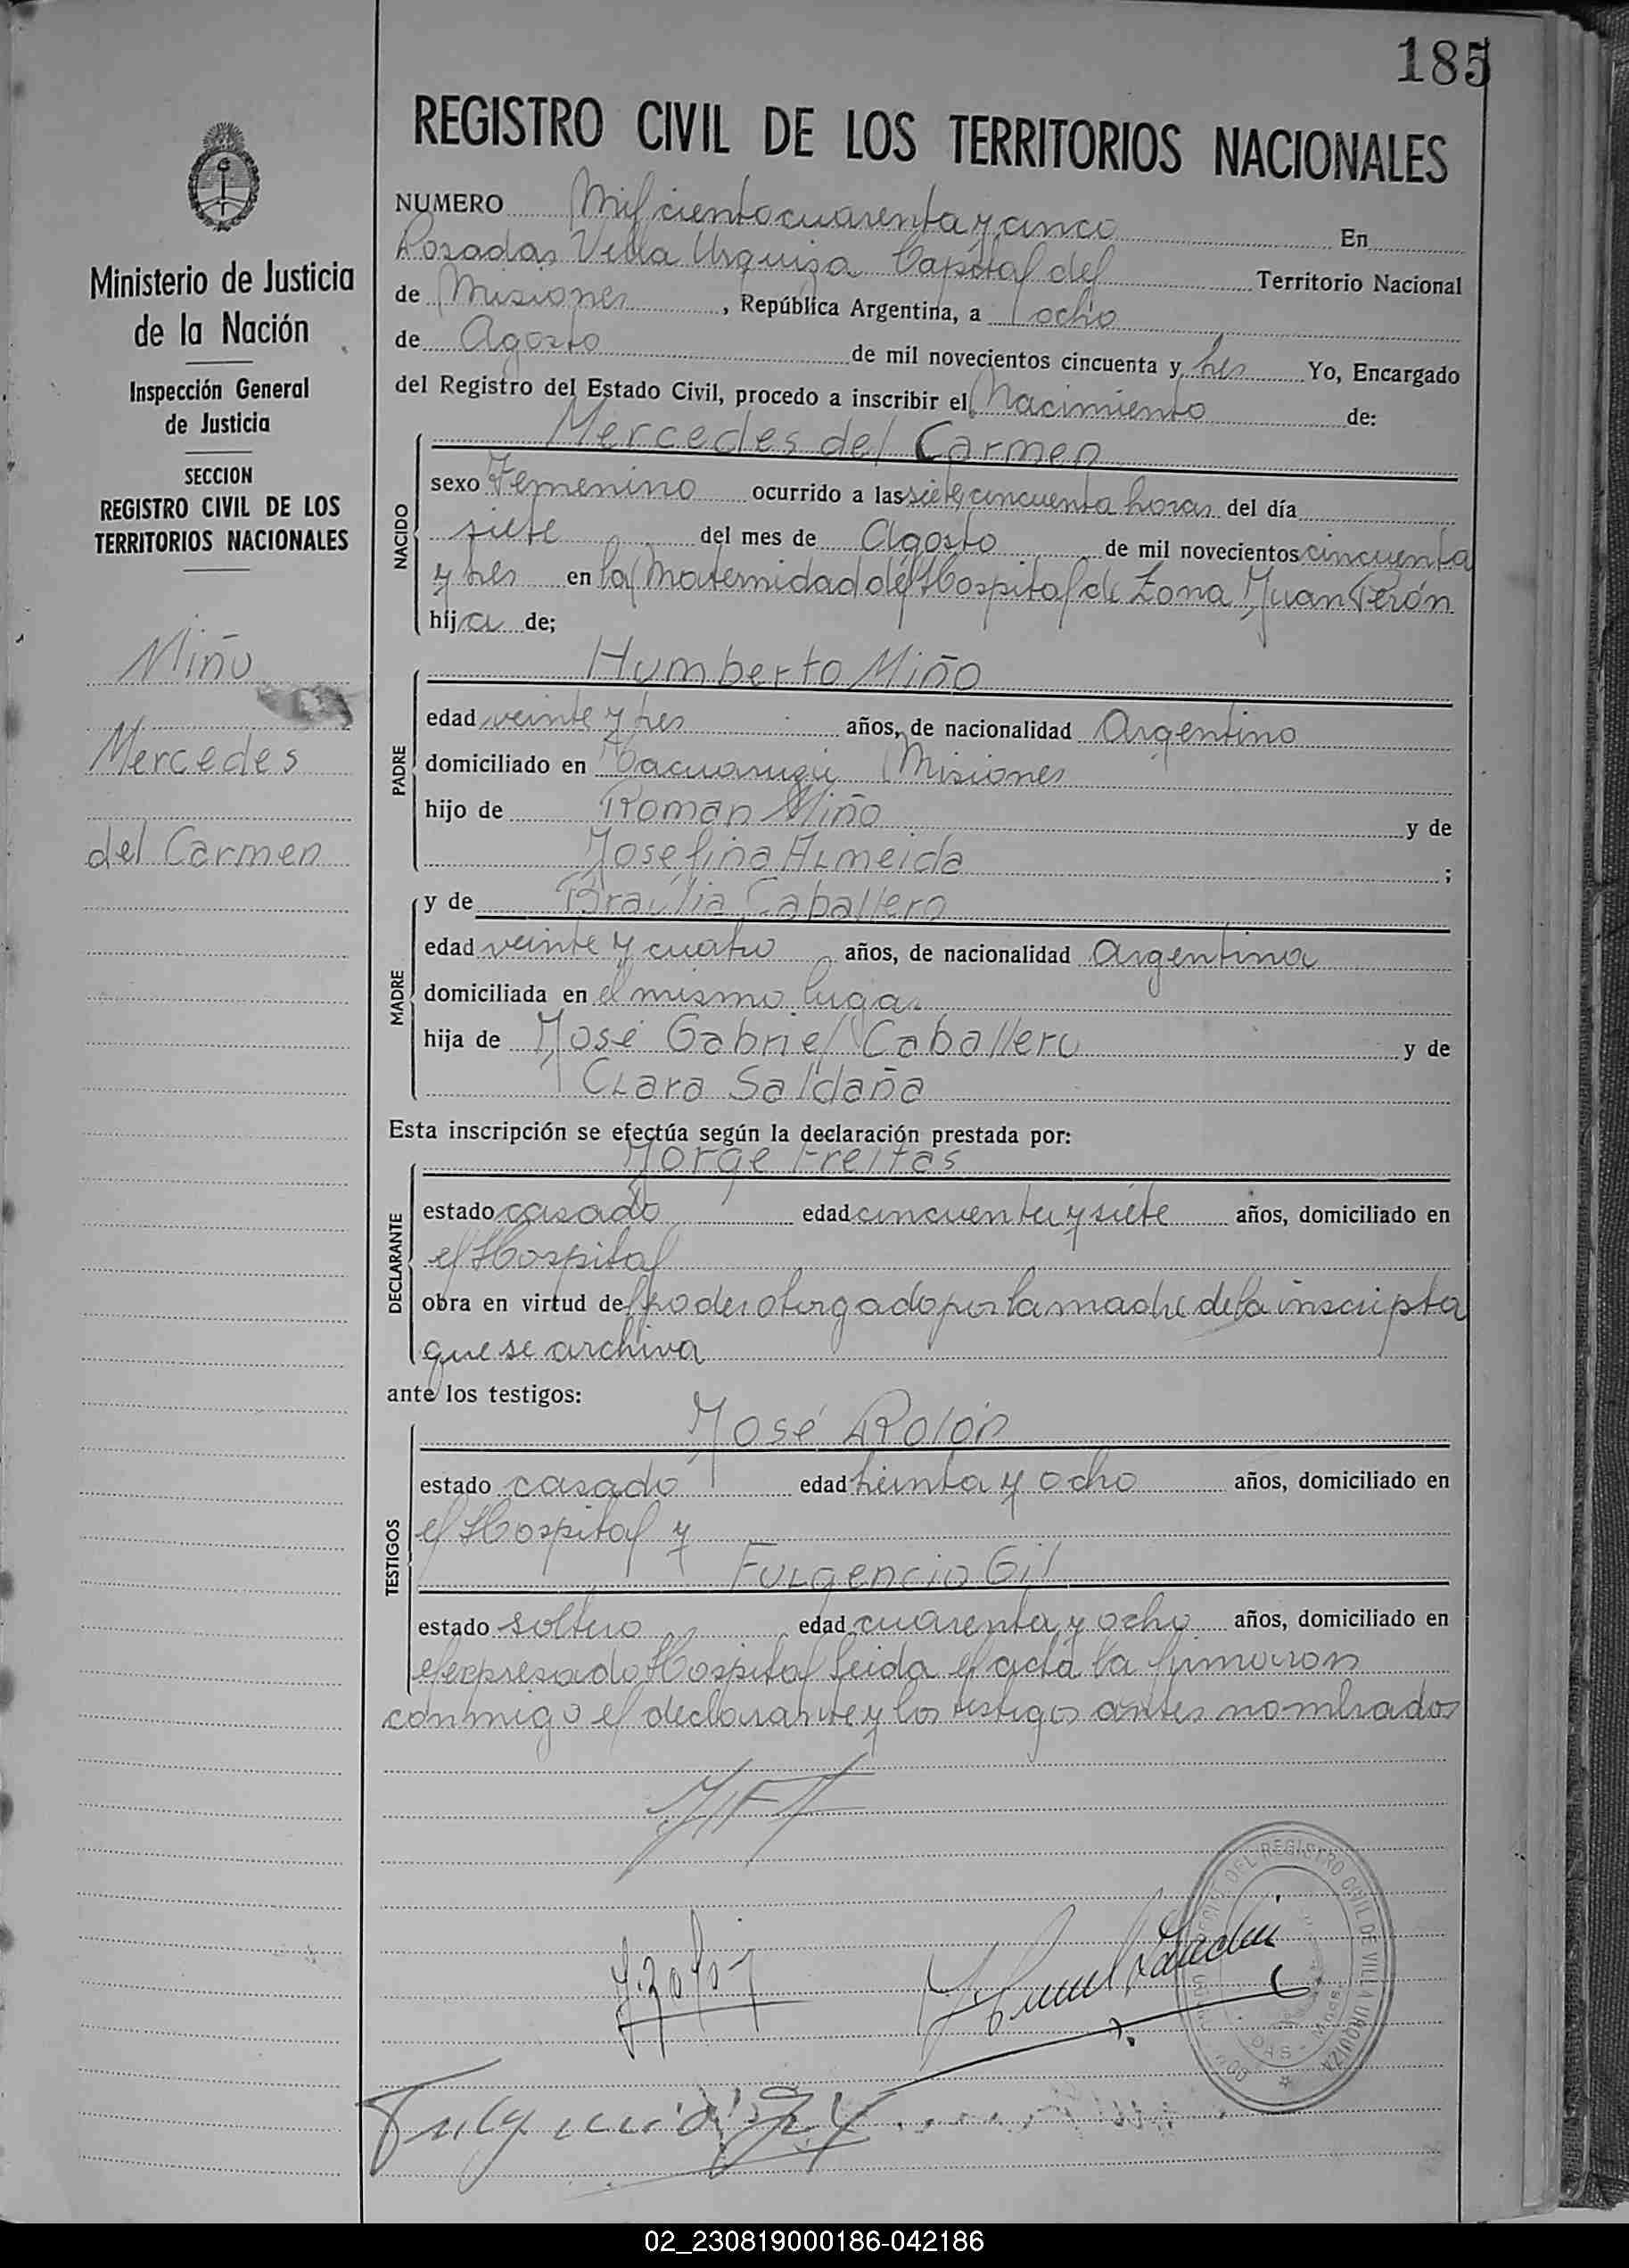 185
REGISTRO CIVIL DE LOS TERRITORIOS NACIONALES
Ministerio de Justicia
de la Nación
Inspección General
de Justicia
SECCION
REGISTRO CIVIL DE LOS
TERRITORIOS NACIONALES
Miño
Mercedes
del Carmen
NUMERO Mil ciento cuarenta y cinco En
Posadas Villa Urquiza Capital del Territorio Nacional
de Misiones, República Argentina, a ocho
de Agosto de mil novecientos cincuenta y tres Yo, Encargado
del Registro del Estado Civil, procedo a inscribir el Nacimiento de:
NACIDO
Mercedes del Carmen
sexo Femenino ocurrido a las siete y cincuenta horas del día
siete del mes de Agosto de mil novecientos cincuenta
y tres en la Maternidad del Hospital de Zona Juan Perón
hija de;
PADRE
Humberto Miño
edad veinte y tres años, de nacionalidad Argentino
domiciliado en Misiones
hijo de Roman Miño y de
Josefina Almeida ;
MADRE
y de Braulia Caballero
edad veinte y cuatro años, de nacionalidad Argentina
domiciliada en el mismo lugar
hija de José Gabriel Caballero y de
Clara Saldaña
Esta inscripción se efectúa según la declaración prestada por:
DECLARANTE
Jorge Freitas
estado casado edad cincuenta y siete años, domiciliado en
el Hospital
obra en virtud del poder otorgado por la madre de la inscripta
que se archiva
ante los testigos:
TESTIGOS
José Rolón
estado casado edad treinta y ocho años, domiciliado en
el Hospital y
Fulgencio Gil
estado soltero edad cuarenta y ocho años, domiciliado en
el expresado Hospital leida el acta la firmaron
conmigo el declarante y los testigos antes nombrados
DEL REGISTRO CIVIL DE VILLA URQUIZA
02_230819000186-042186